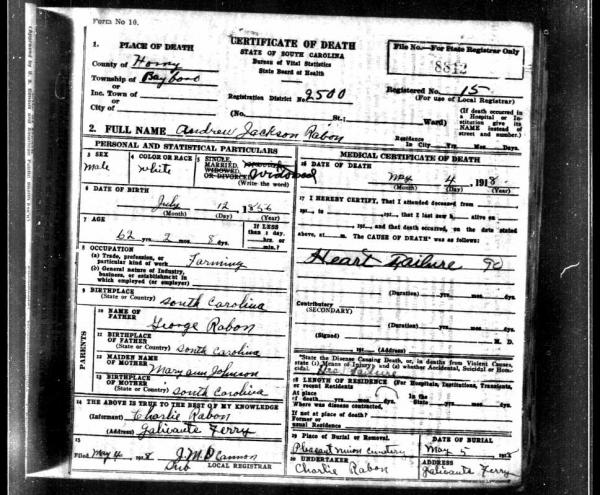 Form No 10.
1. PLACE OF DEATH
County of Horry
Township of Bayboro
or
Inc. Town of
or
City of
CERTIFICATE OF DEATH
STATE OF SOUTH CAROLINA
Bureau of Vital Statistics
State Board of Health
Registration District No. 2500
(No. St.; Ward)
File No.—For State Registrar Only
8812
Registered No. 15
(For use of Local Registrar)
(If death occurred in a Hospital or Institution give its NAME instead of street and number.)
2. FULL NAME Andrew Jackson Rabon
Residence
In City Yrs. Mos. Days.
PERSONAL AND STATISTICAL PARTICULARS
3 SEX
Male
4 COLOR OR RACE
White
5 SINGLE,
MARRIED,
WIDOWED,
OR DIVORCED
Widowed
(Write the word)
6 DATE OF BIRTH
July 12 1856
(Month) (Day) (Year)
7 AGE
62 yrs. 2 mos. 8 ds.
If LESS than 1 day,
hrs. or
min.?
8 OCCUPATION
(a) Trade, profession, or
particular kind of work Farming
(b) General nature of Industry,
business, or establishment in
which employed (or employer)
9 BIRTHPLACE
(State or Country) South Carolina
PARENTS
10 NAME OF
FATHER George Rabon
11 BIRTHPLACE
OF FATHER
(State or Country) South Carolina
12 MAIDEN NAME
OF MOTHER Mary ann Johnson
13 BIRTHPLACE
OF MOTHER
(State or Country) South Carolina
14 THE ABOVE IS TRUE TO THE BEST OF MY KNOWLEDGE
(Informant) Charlie Rabon
(Address) Galivants Ferry
15
Filed May 4 1918 J.M.D Cannon
Sub LOCAL REGISTRAR
MEDICAL CERTIFICATE OF DEATH
16 DATE OF DEATH
May 4, 1918.
(Month) (Day) (Year)
17 I HEREBY CERTIFY, That I attended deceased from
191 , to 191 , that I last saw h alive on
191 , and that death occurred, on the date stated
above, at m. The CAUSE OF DEATH* was as follows:
Heart Failure 90
(Duration) yrs. mos. ds.
Contributory
(SECONDARY)
(Duration) yrs. mos. ds.
(Signed) M. D.
191 (Address)
*State the Disease Causing Death, or, in deaths from Violent Causes, state (1) Means of Injury; and (2) whether Accidental, Suicidal or Homicidal.
18 LENGTH OF RESIDENCE (For Hospitals, Institutions, Transients, or recent Residents
At place
of death yrs. mos. ds. In the
State yrs. mos. ds.
Where was disease contracted,
If not at place of death?
Former or
usual Residence
19 Place of Burial or Removal.
Pleasant union cemetery
DATE OF BURIAL
May 5 191
20 UNDERTAKER
Charlie Rabon
ADDRESS
Galivants Ferry